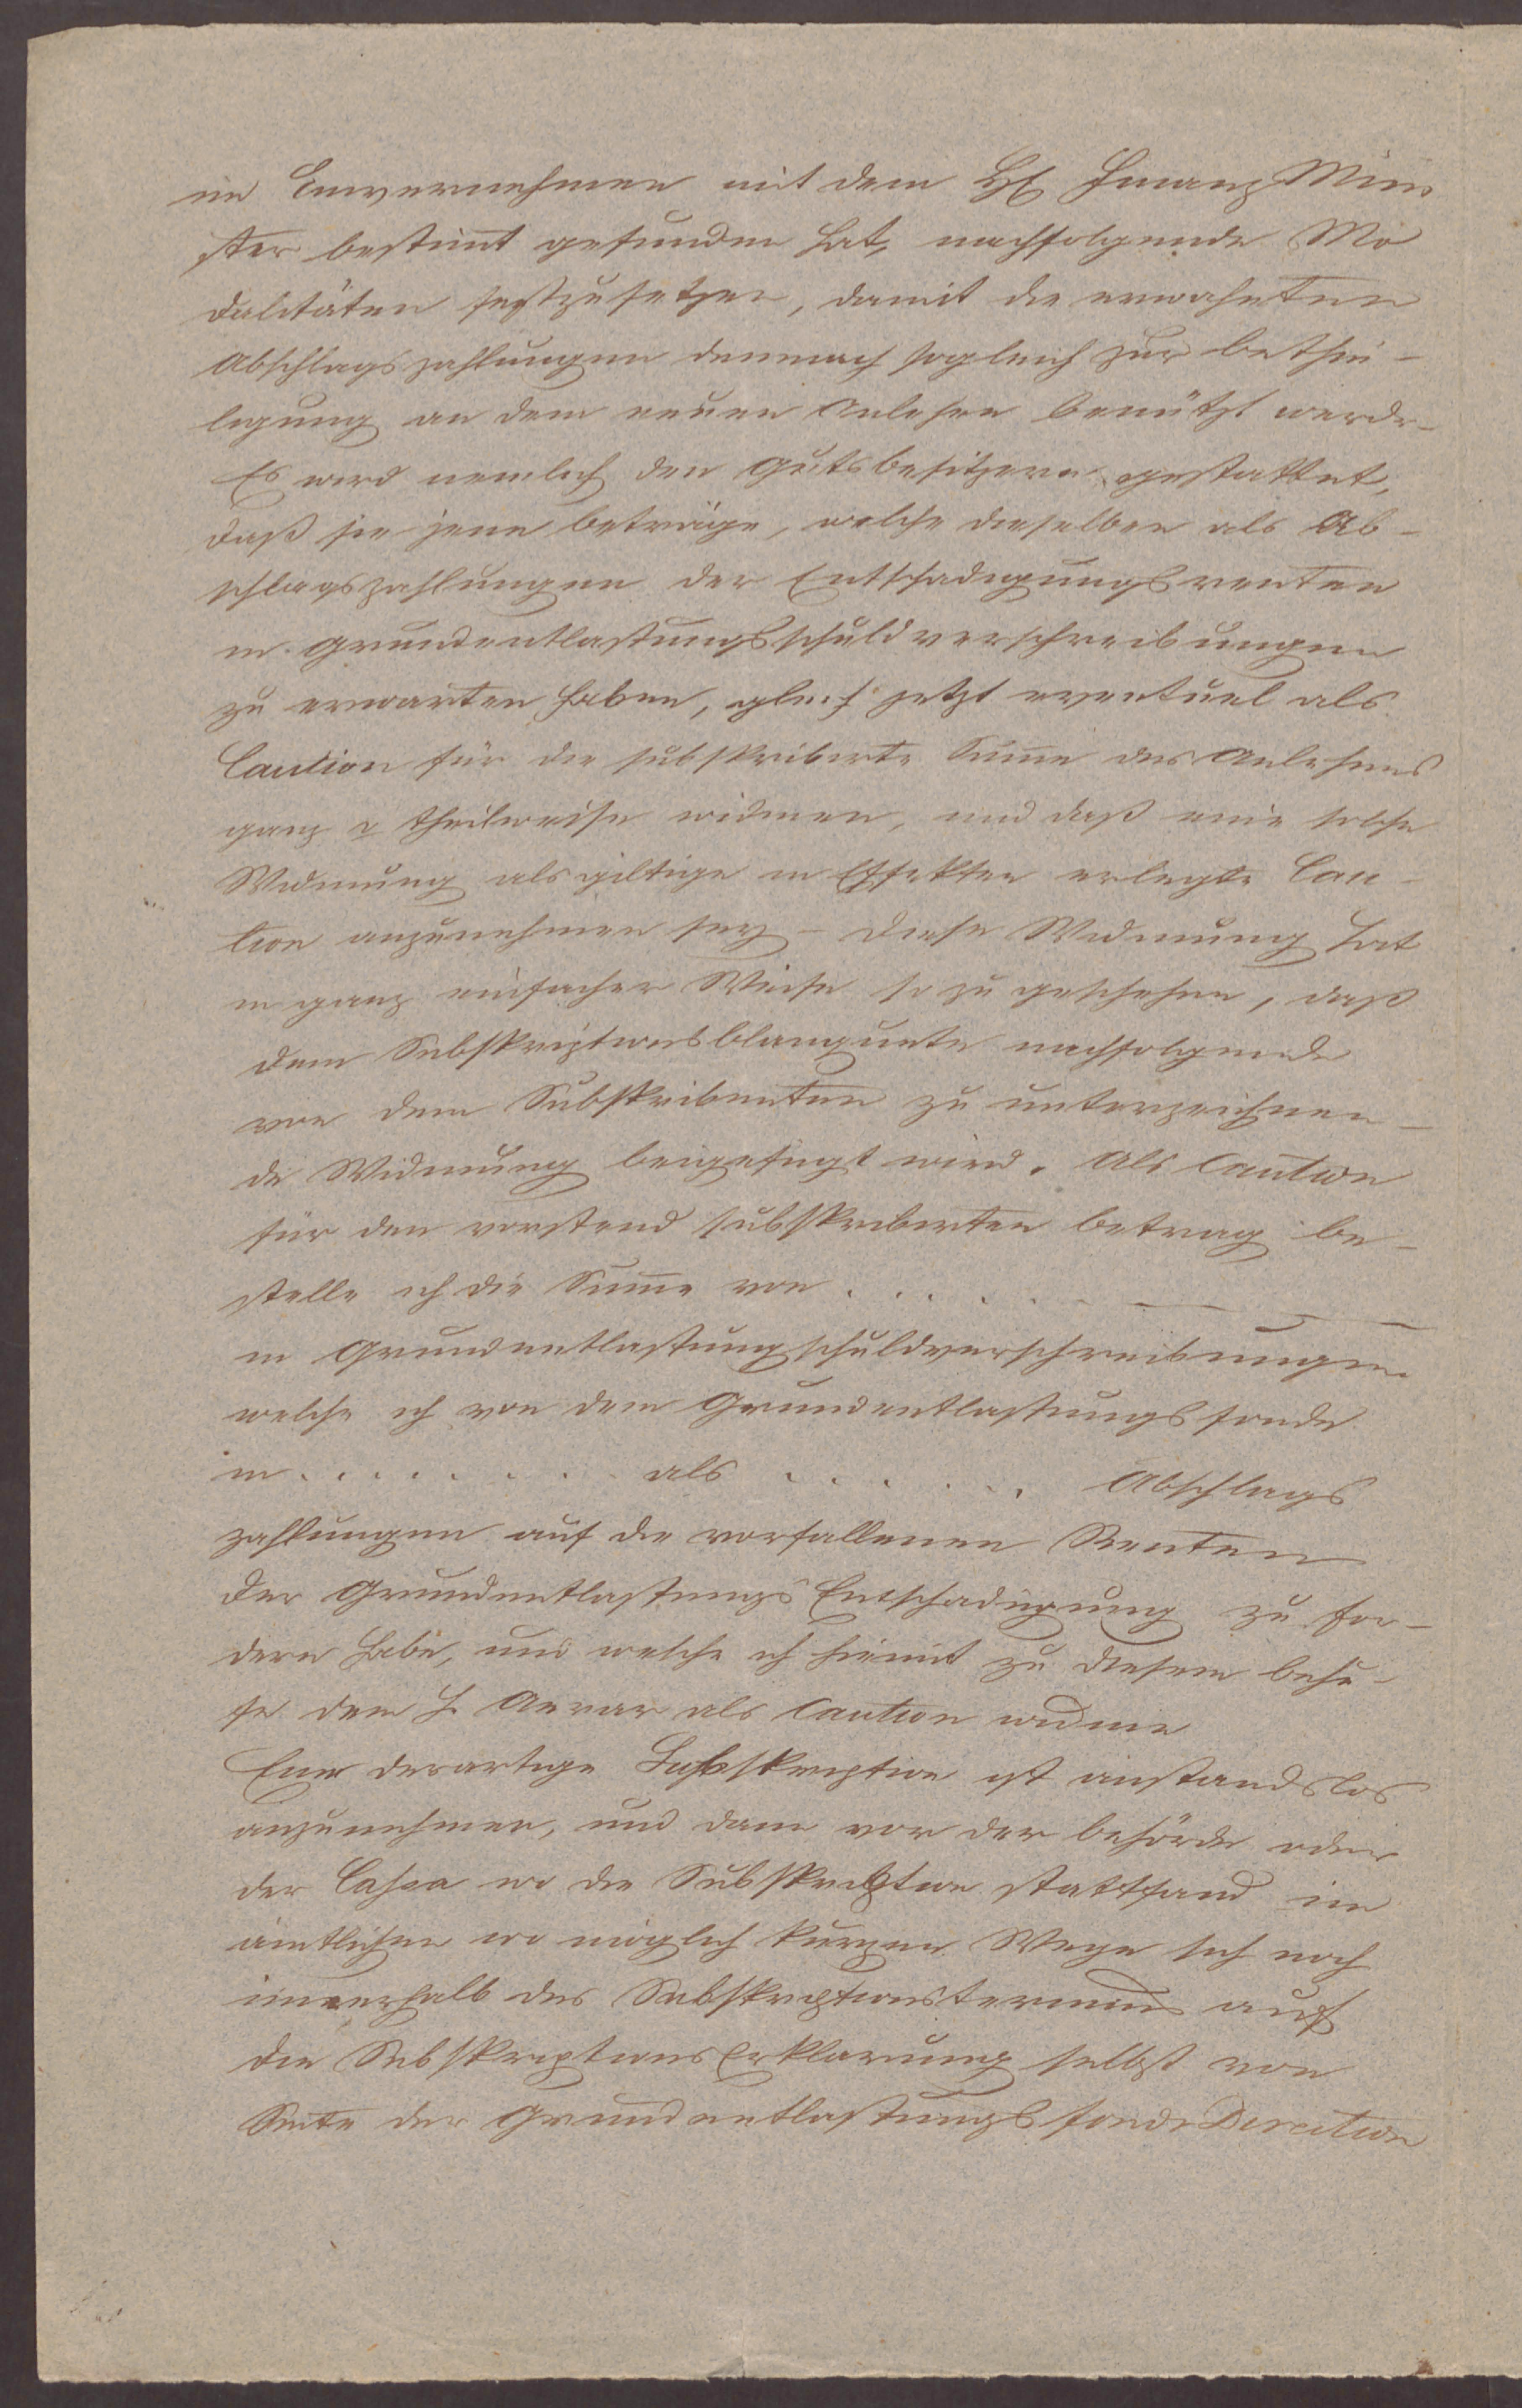 im Einvernehmen mit dem H Finanz Mini
ster bestimt gefunden hat, nachfolgende Mo
dalitäten festzusetzen, damit die erwähnten
Abschlagszahlungen demnach sogleich zur Bethei-
ligung an dem neuen Anlehen benützt werde-
Es wird nemlich den Gutsbesitzern gestattet,
daß sie jene Beträge, welche dieselben als Ab-
schlagszahlungen der Entschädigungsrenten
in Grundentlastungsschuldverschreibungen
zu erwarten haben, gleich jetzt eventuel als
Caution für die subskribirte Sume des Anlehens
ganz theilweise widmen, und daß eine solche
Widmung als giltige in Effekten erlegte Cau-
tion anzunehmen sey – Diese Widmung hat
in ganz einfacher Weise so zu geschehen, daß
dem Subskriptionsblanquete nachfolgende
von dem Subskribenten zu unterzeichnen-
de Widmung beigefügt wird. Als Caution
für den vorstend subskribirten Betrag be-
stelle ich die Sume von . . . . . .
in Grundentlastungsschuldverschreibungen
welche ich von dem Grundentlastungsfonde
in . . . . . . . als . . . . . . Abschlags
zahlungen auf die verfallenen Renten
der Grundentlastungs Entschädigung zu for-
dern habe, und welche ich hiemit zu diesem Behu-
fe dem h. Aerar als Caution widme
Eine derartige Subskription ist anstandslos
anzunehmen, und dann von der Behörde oder
der Cassa wo die Subskription stattfand im
ämtlichen wo möglich kurzen Wege sich noch
innerhalb des Subskriptionstermins auf
die Subskriptions Erklärung selbst von
Seite der Grundentlastungsfonds Direction